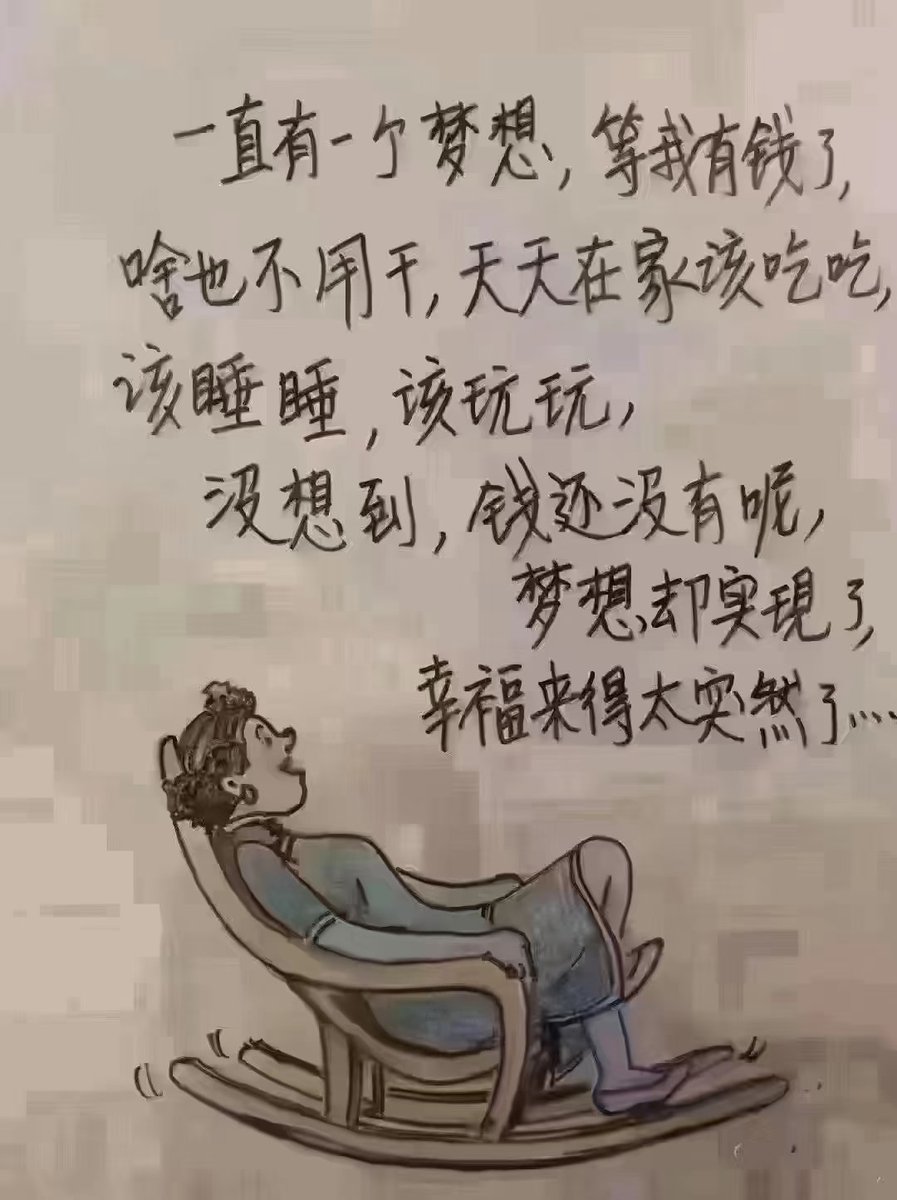 一直有一个梦想，等我有钱了，
啥也不用干，天天在家该吃吃，
该睡睡，该玩玩，
没想到，钱还没有呢，
梦想却实現了，
幸福来得太突然了....